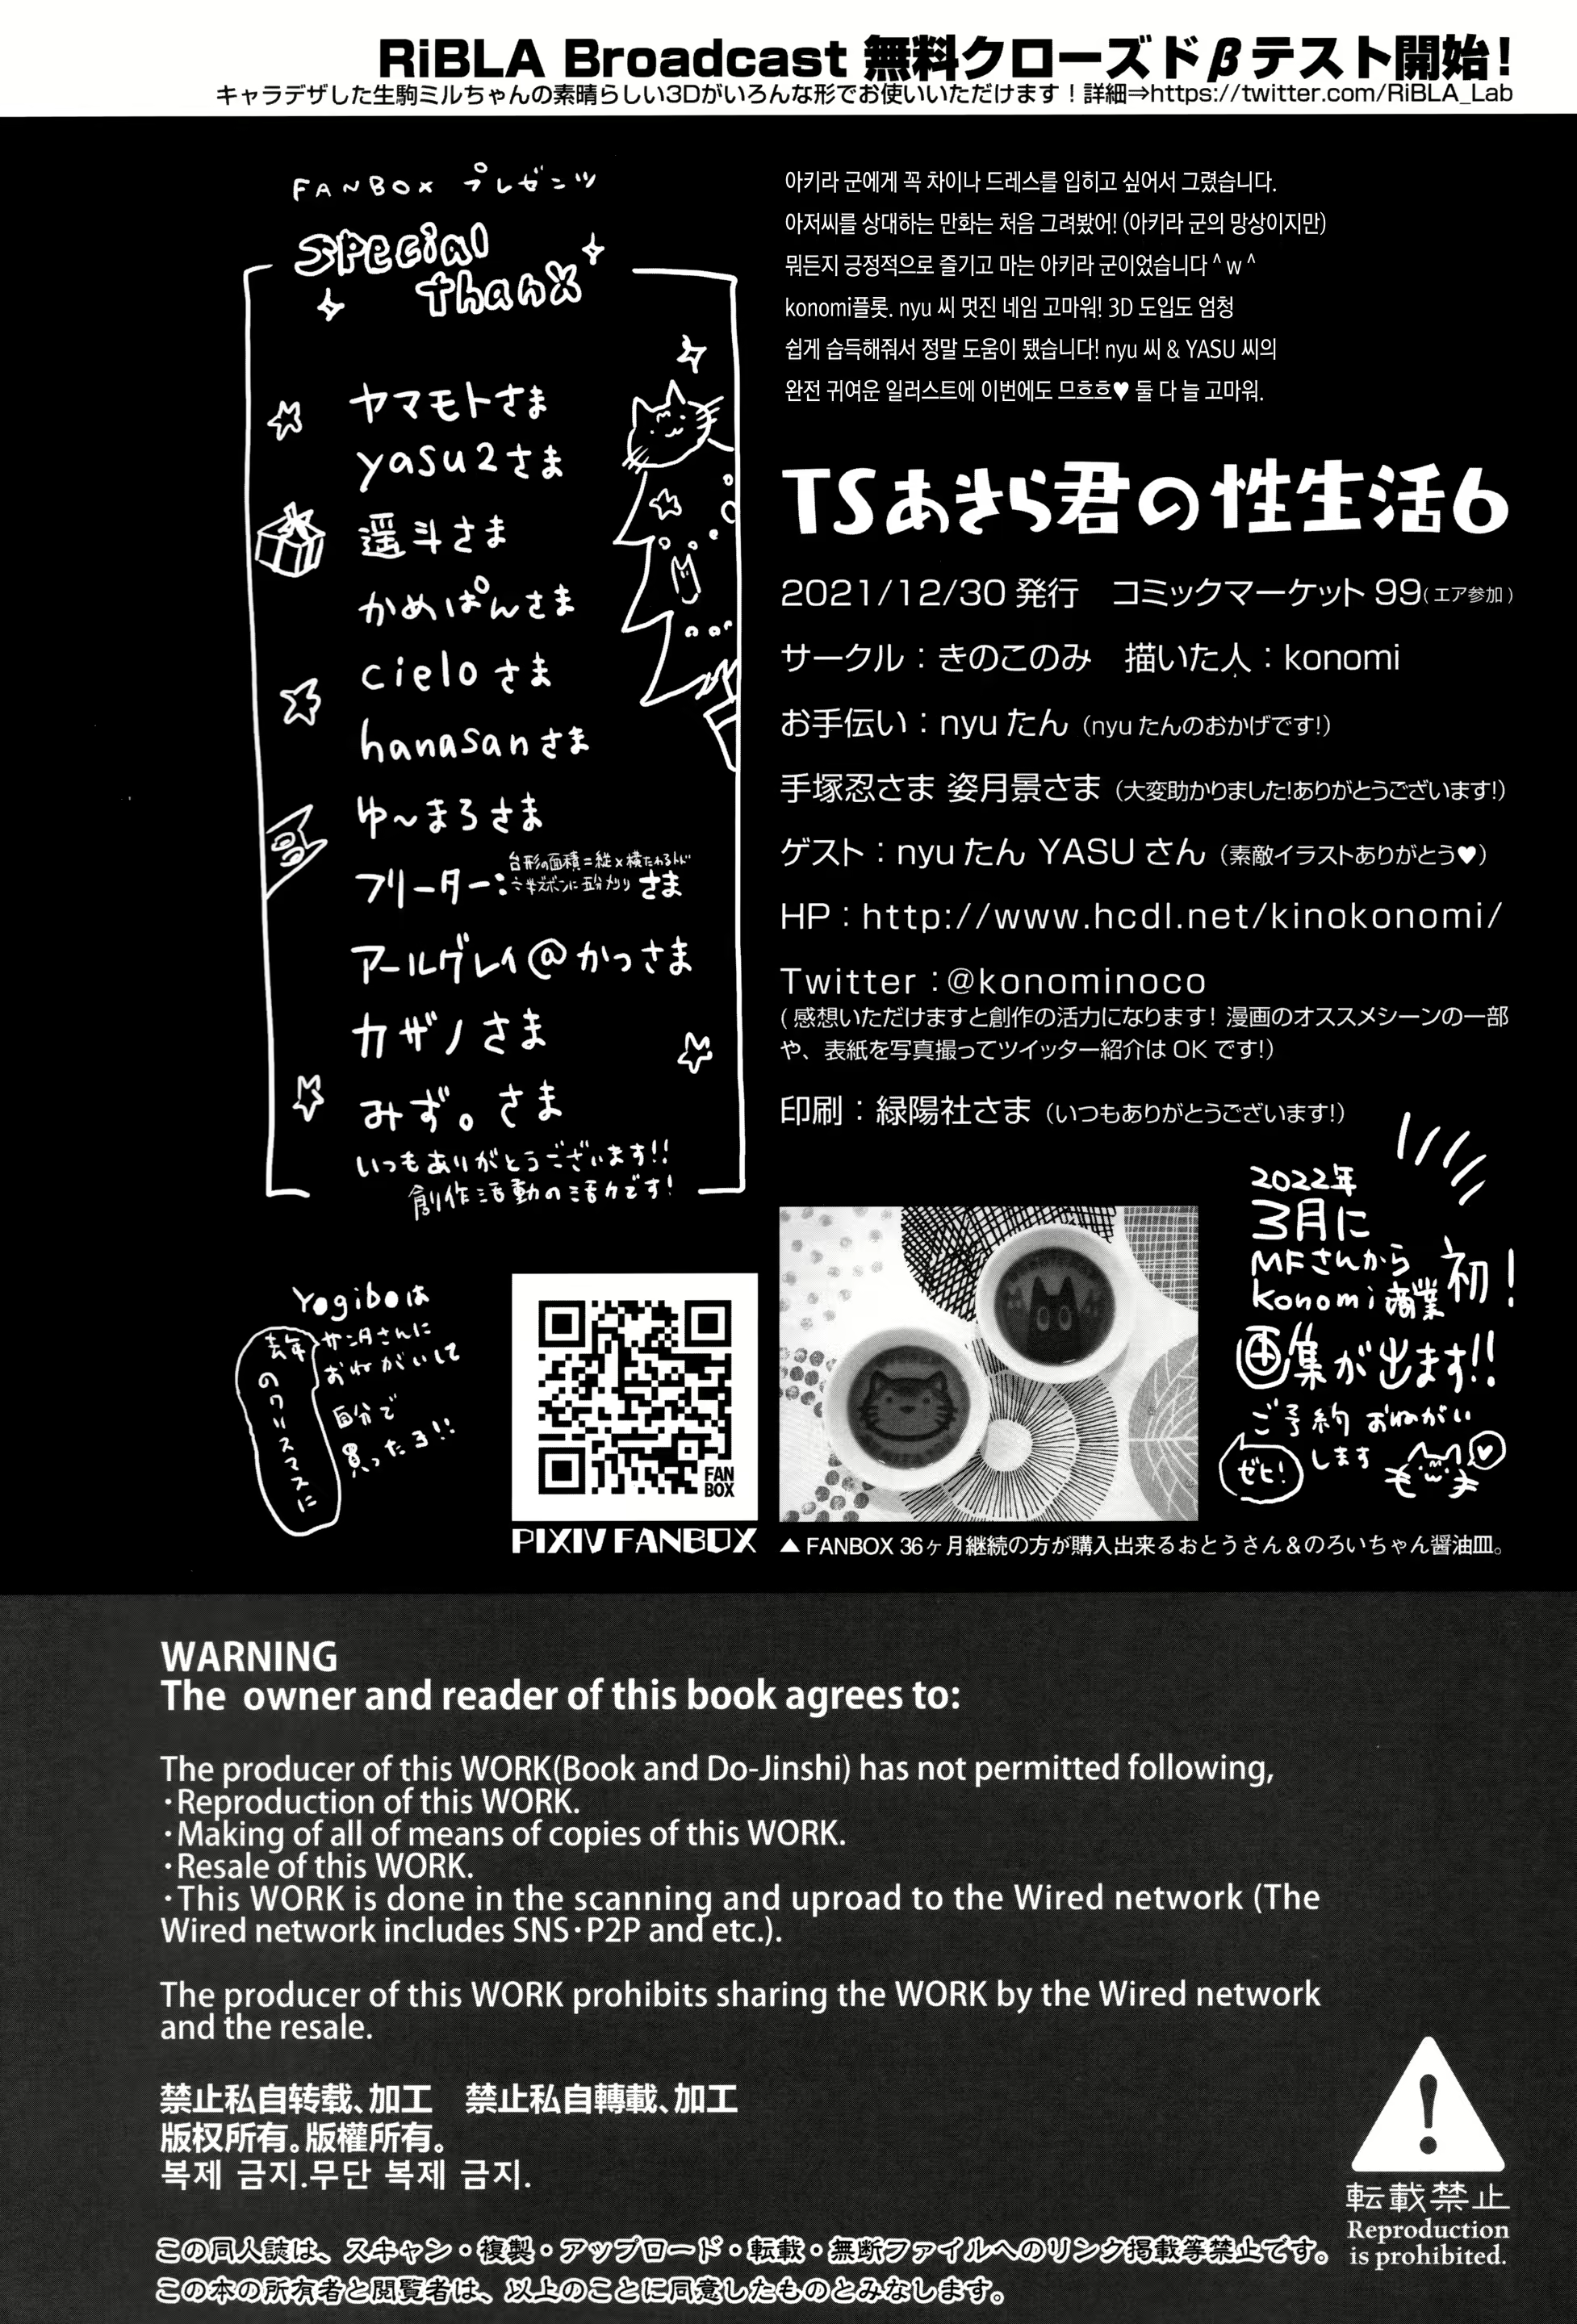 RiBLA Broadcast 無料クローズドβテスト開始!
キャラデザした生駒ミルちゃんの素晴らしい3Dがいろんな形でお使いいただけます！詳細⇒https://twitter.com/RiBLA_Lab
FANBOX プレゼンツ
Special
Thanx
ヤマモトさま
yasu2さま
遥斗さま
かめぱんさま
cieloさま
hanasanさま
ゆ～まろさま
台形の面積=縦×横
フリーター:さま
アールグレイ@かっさま
カザノさま
みず。さま
いつもありがとうございます!!
創作活動の活力です!
아키라 군에게 꼭 차이나 드레스를 입히고 싶어서 그렸습니다.
아저씨를 상대하는 만화는 처음 그려봤어! (아키라 군의 망상이지만)
뭐든지 긍정적으로 즐기고 마는 아키라 군이었습니다 ^ w ^
konomi플롯. nyu 씨 멋진 네임 고마워! 3D 도입도 엄청
쉽게 습득해줘서 정말 도움이 됐습니다! nyu 씨 & YASU 씨의
완전 귀여운 일러스트에 이번에도 므흐흐♥ 둘 다 늘 고마워.
TSあきら君の性生活6
2021/12/30 発行　コミックマーケット 99(エア参加)
サークル：きのこのみ　描いた人：konomi
お手伝い：nyuたん（nyuたんのおかげです!）
手塚忍さま 姿月景さま（大変助かりました!ありがとうございます!）
ゲスト：nyuたん YASUさん（素敵イラストありがとう♥）
HP：http://www.hcdl.net/kinokonomi/
Twitter：@konominoco
(感想いただけますと創作の活力になります! 漫画のオススメシーンの一部
や、表紙を写真撮ってツイッター紹介は OK です!)
印刷：緑陽社さま（いつもありがとうございます!）
Yogiboは
去年のクリスマスに
サンタさんに
おねがいして
自分で
買ったる!!
FAN
BOX
PIXIV FANBOX
2022年
3月に
MFさんから
konomi商業初!
画集が出ます!!
ご予約 おねがい
します
ゼヒ!
▲ FANBOX 36ヶ月継続の方が購入出来るおとうさん＆のろいちゃん醤油皿。
WARNING
The owner and reader of this book agrees to:
The producer of this WORK(Book and Do-Jinshi) has not permitted following,
・Reproduction of this WORK.
・Making of all of means of copies of this WORK.
・Resale of this WORK.
・This WORK is done in the scanning and uproad to the Wired network (The
Wired network includes SNS・P2P and etc.).
The producer of this WORK prohibits sharing the WORK by the Wired network
and the resale.
禁止私自转载、加工　禁止私自轉載、加工
版权所有。版權所有。
복제 금지.무단 복제 금지.
この同人誌は、スキャン・複製・アップロード・転載・無断ファイルへのリンク掲載等禁止です。
この本の所有者と閲覧者は、以上のことに同意したものとみなします。
転載禁止
Reproduction
is prohibited.